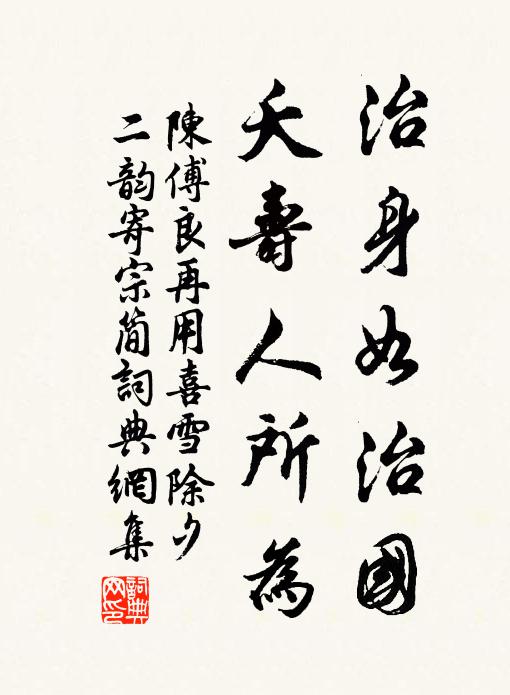 治身如治國
夭壽人所為
陳傅良再用喜雪除夕
二韵寄宗簡詞典網集
詞典網印